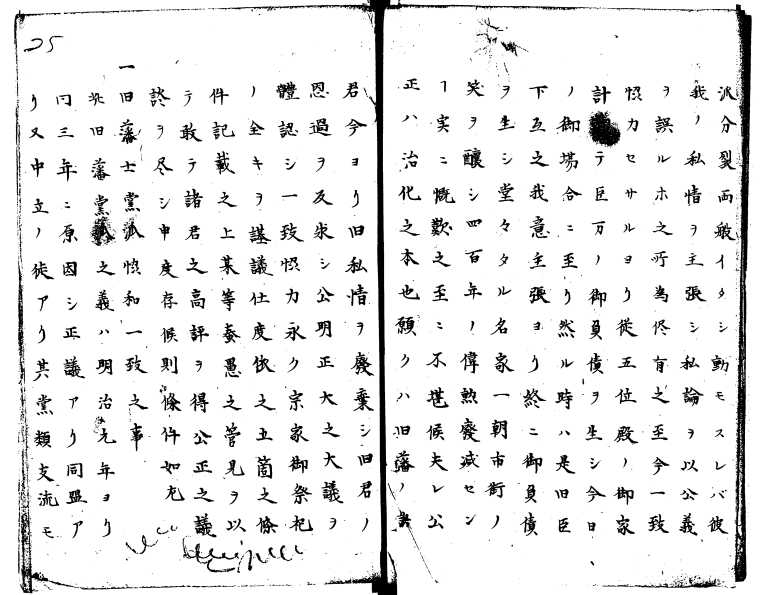 派分裂両般イタシ動モスレバ彼
我ノ私情ヲ主張シ私論ヲ以公義
ヲ誤ルホ之所為侭有之至今一致
恊力セサルヨリ従五位殿ノ御家
計テ巨万ノ御負債ヲ生シ今日
ノ御場合ニ至リ然ル時ハ是旧臣
下互之我意主張ヨリ終ニ御負債
ヲ生シ堂々タル名家一朝市街ノ
笑ヲ醸シ四百年ノ偉勲廃滅セン
ヿ実ニ慨歎之至ニ不堪候夫レ公
正ハ治化之本也願クハ旧藩ノ諸
君今ヨリ旧私情ヲ廃棄シ旧君ノ
恩過ヲ反求シ公明正大之大議ヲ
體認シ一致恊力永ク宗家御祭祀
ノ全キヲ謀議仕度依之五箇之條
件記載之上某等蠢愚之管見ヲ以
テ敢テ諸君之高評ヲ得公正之議
終ヲ尽シ申度存候則條件如左
一旧藩士党派恊和一致之事
此旧藩党派之義ハ明治元年ヨリ
同三年ニ原因シ正議アリ同盟ア
リ又中立ノ徒アリ其党類支流モ
25